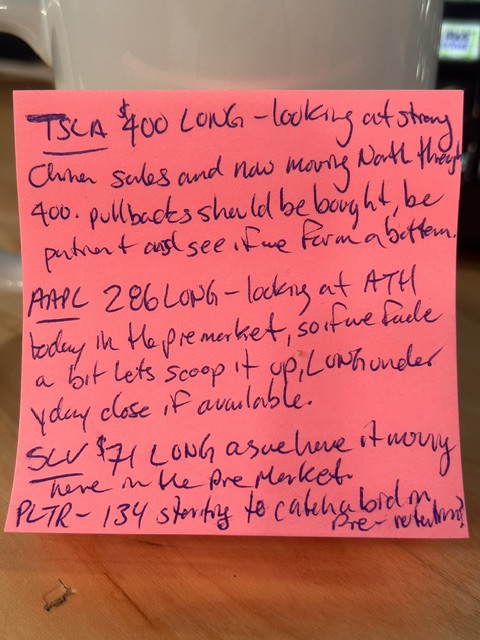 TSLA $400 LONG - looking at strong
China sales and now moving North through
400. pullbacks should be bought, be
patient and see if we form a bottom.
AAPL 286 LONG - looking at ATH
today in the premarket, so if we fade
a bit lets scoop it up, LONG under
yday close if available.
SLV $71 LONG as we have it moving
here in the PreMarket.
PLTR - 134 starting to catch a bid in
Pre-